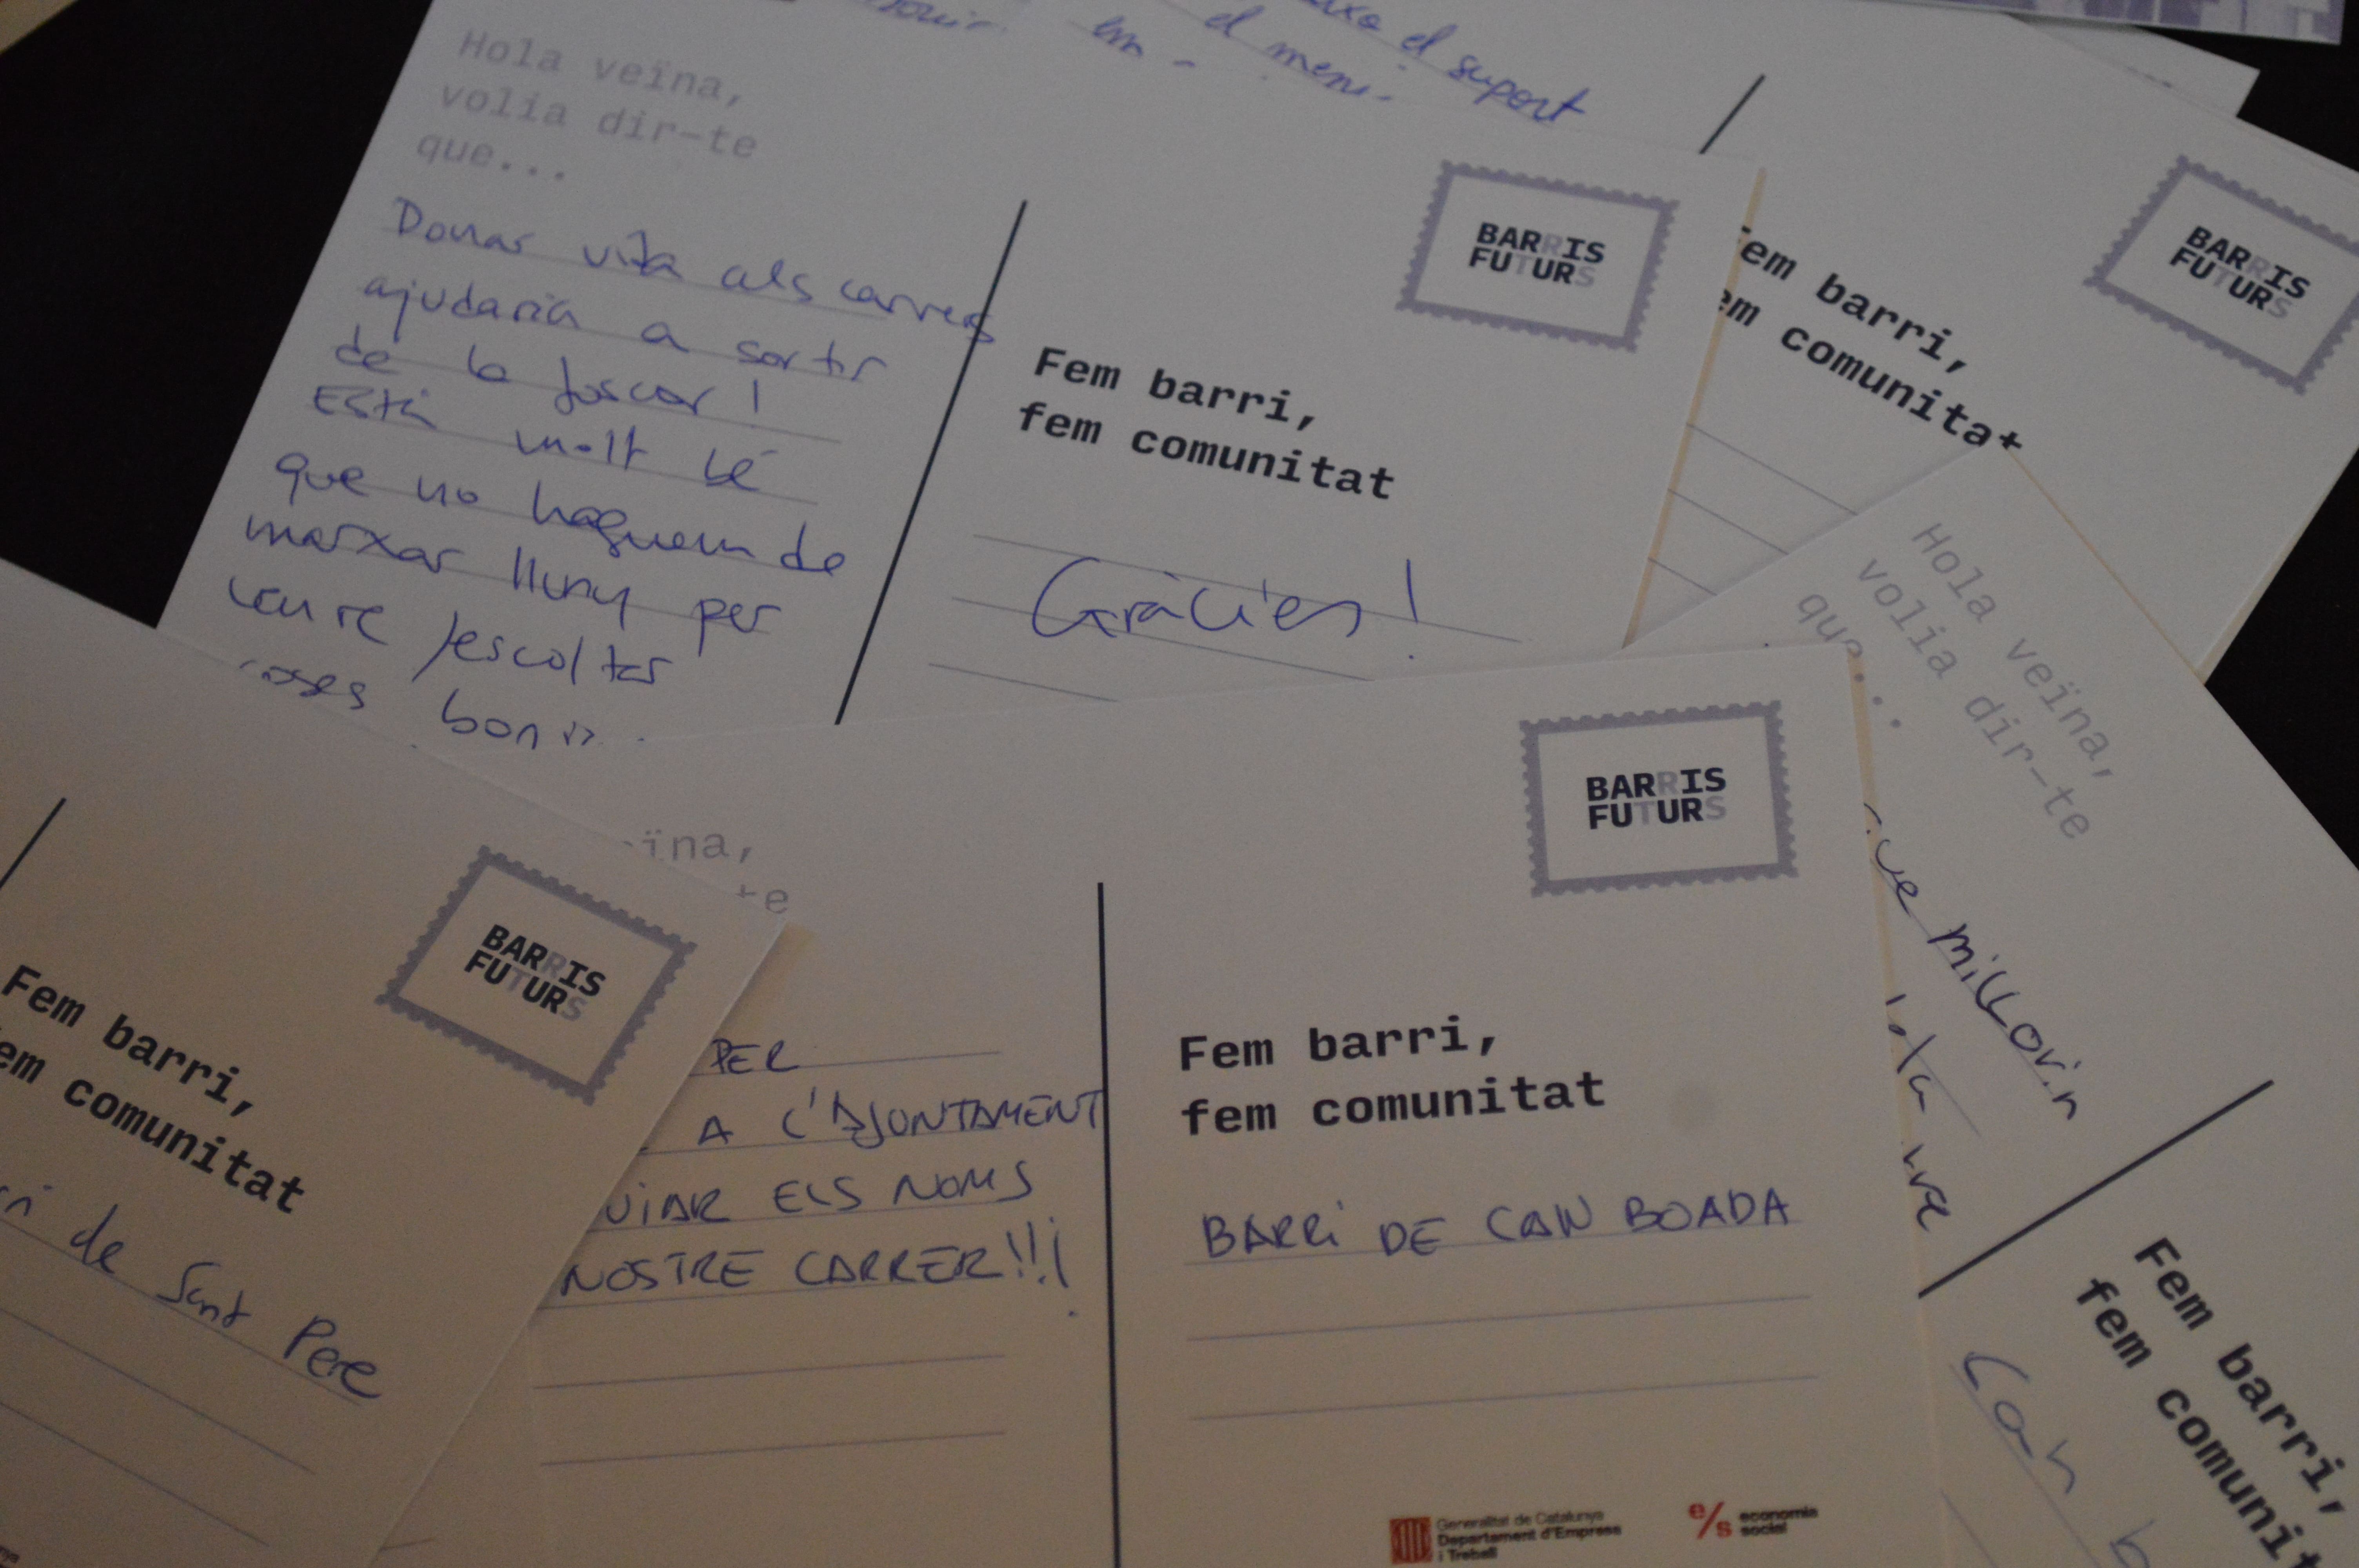 el suport
el
Hola veïna,
volia dir-te
que...
Donar vida als carrers
ajudaria a sortir
de la foscor!
Està molt bé
que no haguem de
marxar lluny per
veure/escoltar
BARRIS
FUTURS
Fem barri,
fem comunitat
Gràcies!
BARRIS
FUTURS
Fem barri,
em comunitat
Hola veïna,
volia dir-te
que...
millorin
Fem barri,
fem comunit
Can b
BARRIS
FUTURS
Fem barri,
em comunitat
de Sant Pere
ïna,
te
PER
A L'AJUNTAMENT
VIAR ELS NOMS
NOSTRE CARRER!!!
BARRIS
FUTURS
Fem barri,
fem comunitat
BARRI DE CAN BOADA
Generalitat de Catalunya
Departament d'Empresa
i Treball
e/s economia
social